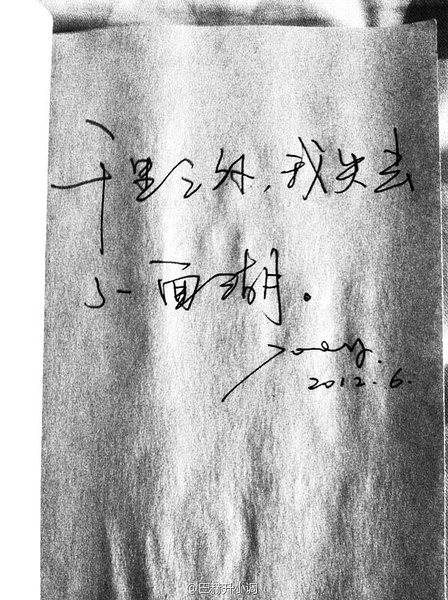 千里之外,我失去
了一面湖。
Joey.
2012.6.
@巴赫升小调